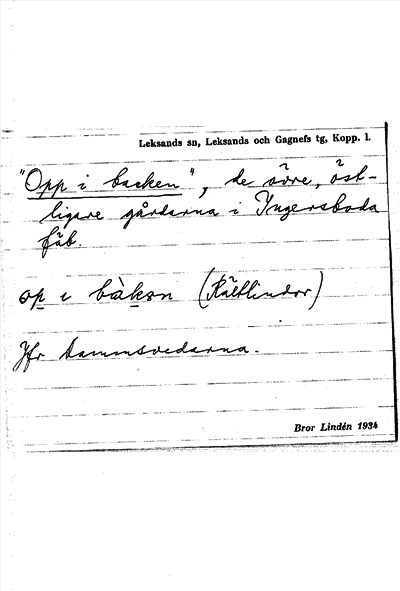 Leksands sn, Leksands och Gagnefs tg, Kopp. l.
"Opp i backen", de övre, öst-
ligare gårdarna i Yngersboda
fäb.
op i bàkən (Rältlindor)
Jfr Dammsvedarna.
Bror Lindén 1934